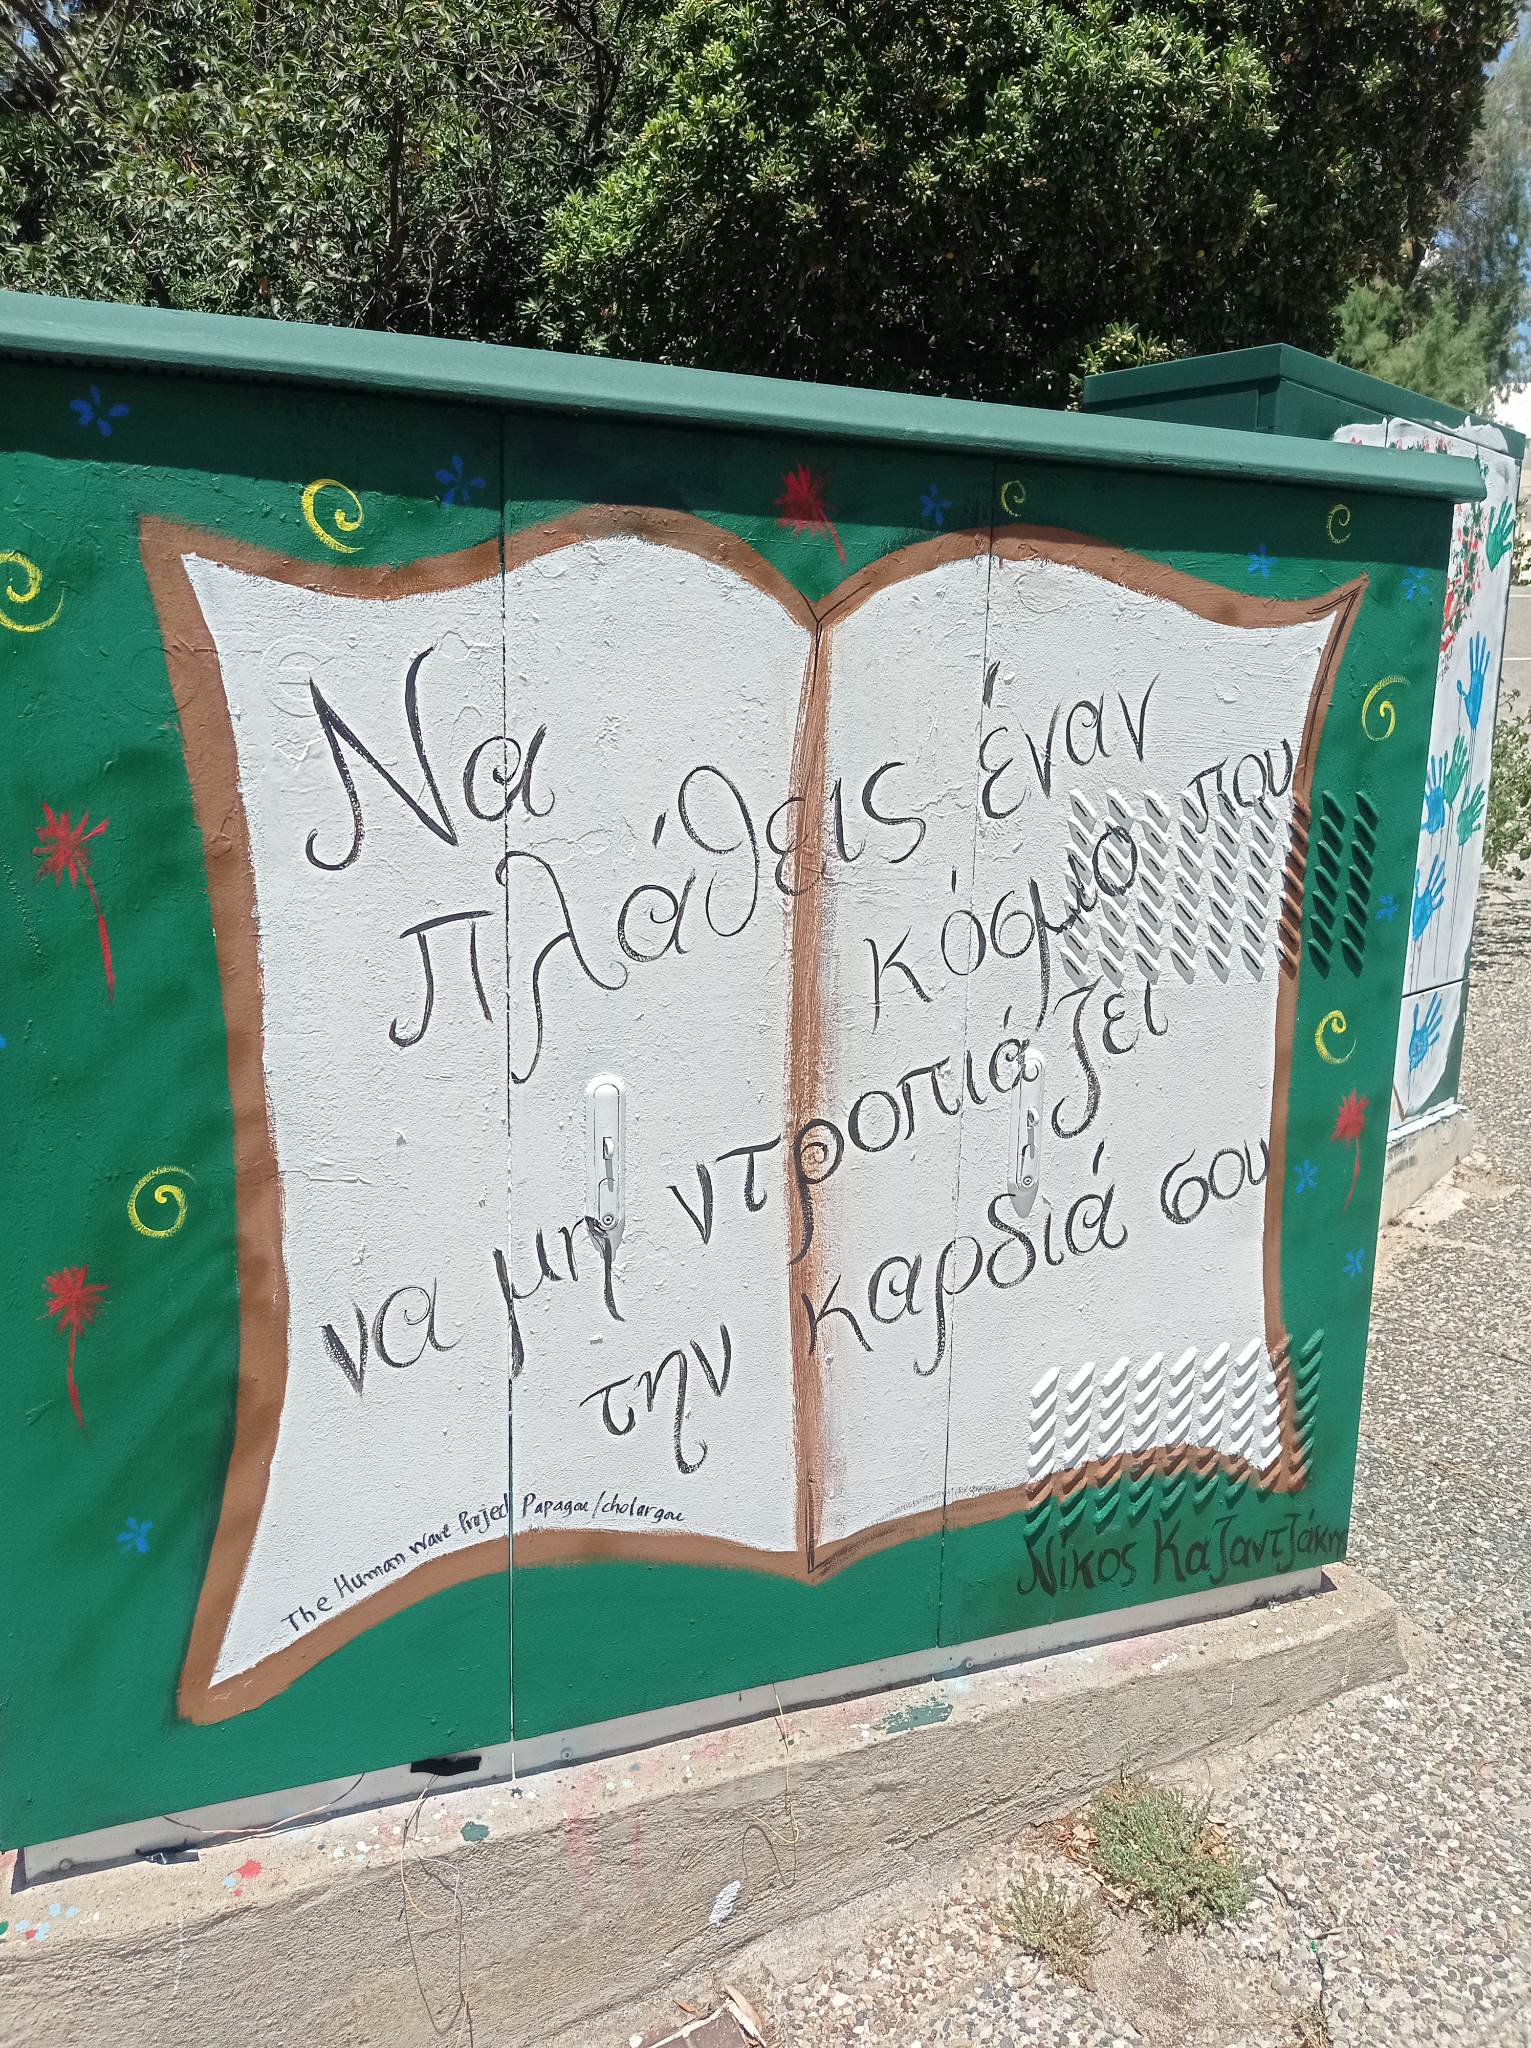 Να
πλάθεις έναν
κόσμο που
να μη ντροπιάζει
την καρδιά σου
The Human Wave Project Papagou/cholargou
Νίκος Καζαντζάκης